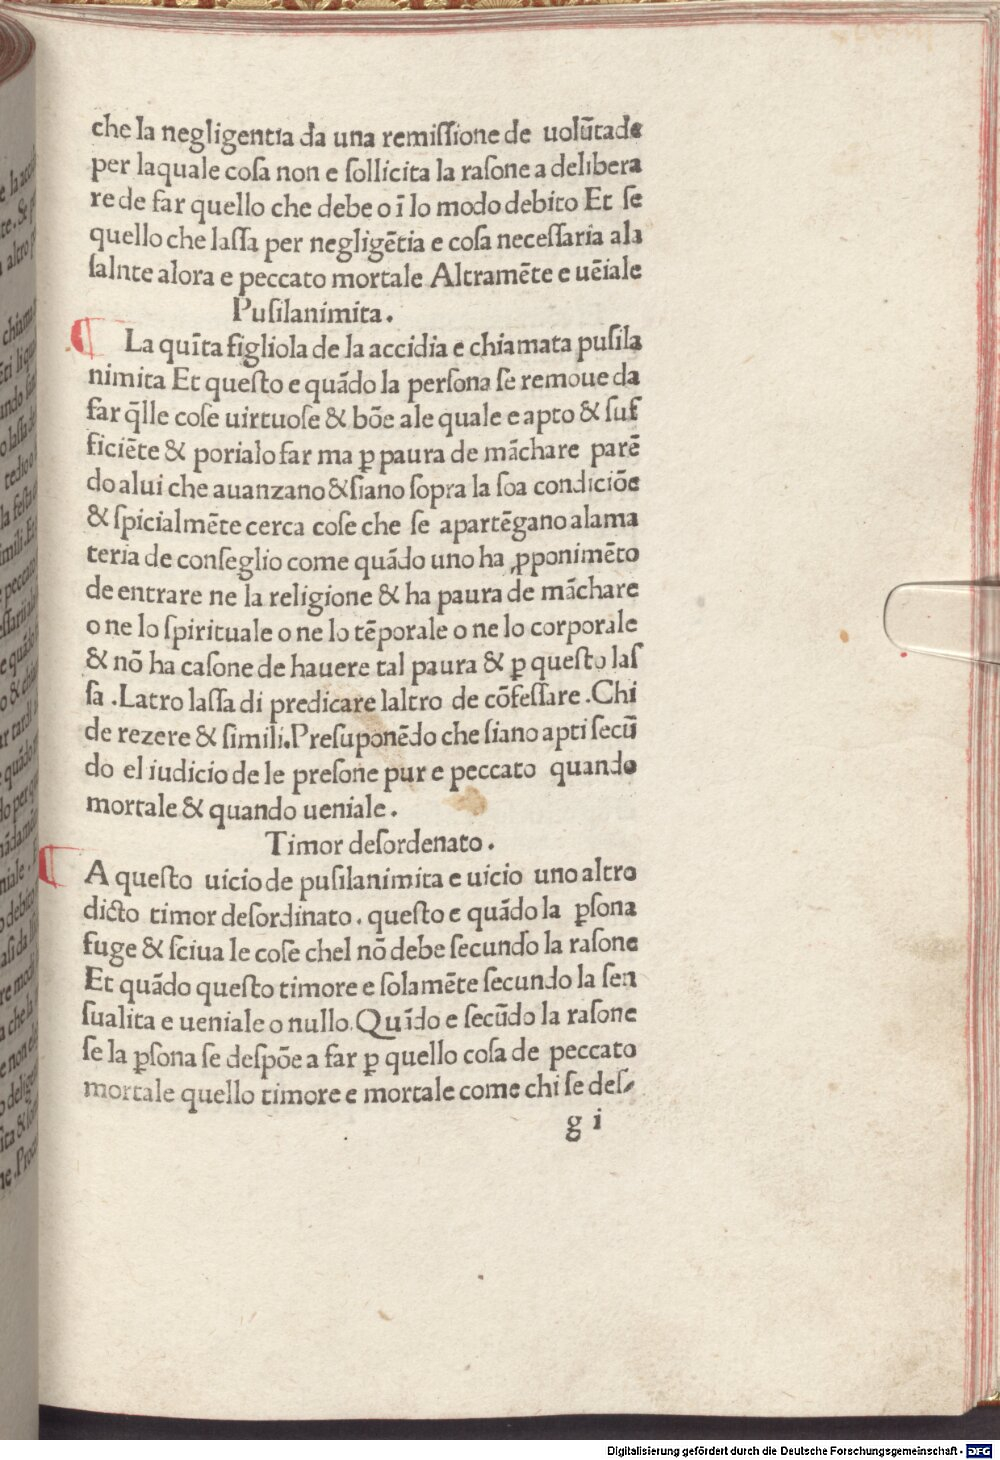 che la negligentia da una remiſſione de uolũtade
per laquale coſa non e ſollicita la raſone a delibera
re de far quello che debe o ĩ lo modo debito Et ſe
quello che laſſa per negligẽtia e coſa neceſſaria ala
ſalnte alora e peccato mortale Altramẽte e uẽiale
Puſilanimita.
La quĩta figliola de la accidia e chiamata puſila
nimita Et queſto e quãdo la perſona ſe remoue da
far q̃lle coſe uirtuoſe & bõe ale quale e apto & ſuf
ficiẽte & porialo far ma ꝑ paura de mãchare parẽ
do alui che auanzano & ſiano ſopra la ſoa condiciõe
& ſpicialmẽte cerca coſe che ſe apartẽgano alama
teria de conſeglio come quãdo uno ha ꝓponimẽto
de entrare ne la religione & ha paura de mãchare
o ne lo ſpirituale o ne lo tẽporale o ne lo corporale
& nõ ha caſone de hauere tal paura & ꝑ queſto laſ
ſa .Latro laſſa di predicare laltro de cõfeſſare .Chi
de rezere & ſimili.Preſuponẽdo che ſiano apti ſecũ
do el iudicio de le preſone pur e peccato quando
mortale & quando ueniale .
Timor deſordenato .
A queſto uicio de puſilanimita e uicio uno altro
dicto timor deſordinato . queſto e quãdo la ꝑſona
fuge & ſciua le coſe chel nõ debe ſecundo la raſone
Et quãdo queſto timore e ſolamẽte ſecundo la ſen
ſualita e ueniale o nullo.Quĩdo e ſecũdo la raſone
ſe la ꝑſona ſe deſpõe a far ꝑ quello coſa de peccato
mortale quello timore e mortale come chi ſe deſ⸗
g i
Digitalisierung gefördert durch die Deutsche Forschungsgemeinschaft - DFG